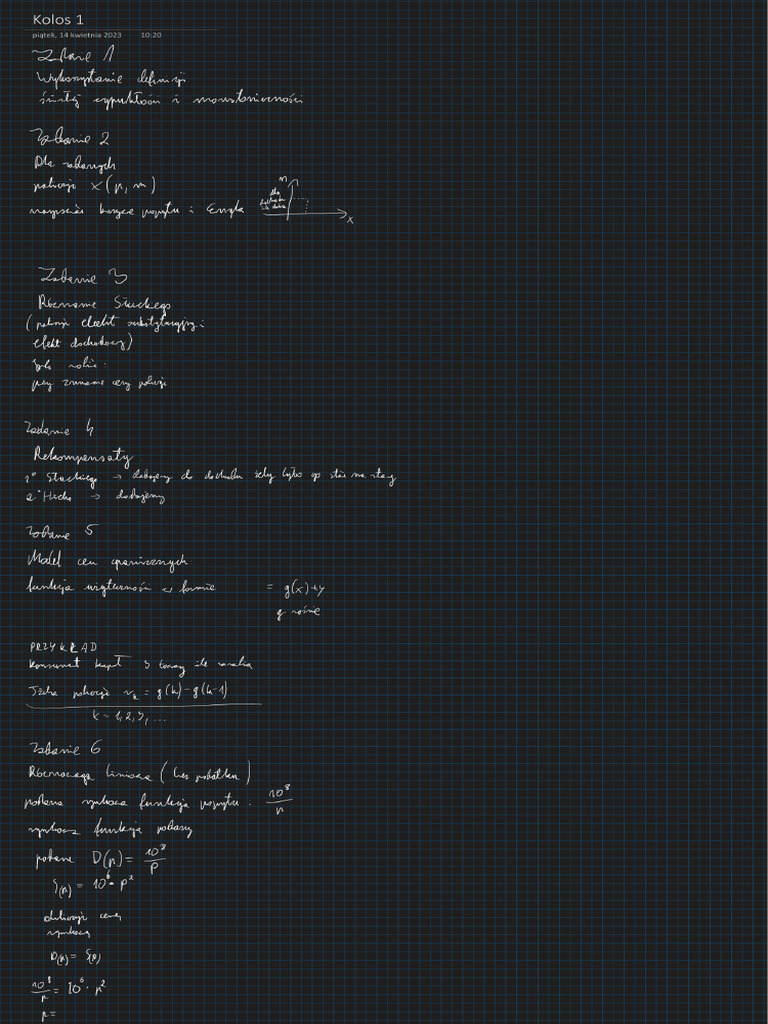 Kolos 1
piątek, 14 kwietnia 2023 10:20
Zadanie 1
Wykorzystanie definicji
ścisłej wypukłości i monotoniczności
Zadanie 2
Dla zadanych
policzyć x(p, m)
narysować krzywe popytu i Engla
m
x
Zadanie 3
Równanie Słuckiego
(policzyć efekt substytucyjny i
efekt dochodowy)
przy zmianie ceny policzyć
Zadanie 4
Rekompensaty
1° Słuckiego → dodajemy do dochodu żeby było go stać na stary
2° Hicksa → dodajemy
Zadanie 5
Model cen granicznych
funkcja użyteczności w formie = g(x)+y
g rośnie
PRZYKŁAD
konsument kupił 3 towary
Trzeba policzyć r_k = g(k)-g(k-1)
k = 1, 2, 3, ...
Zadanie 6
Równowaga liniowa (bez podatku)
podana rynkowa funkcja popytu: 10^8/p
rynkowa funkcja podaży
podane D(p) = 10^8/p
S(p) = 10^6 · p^2
obliczyć cenę
rynkową
D(p) = S(p)
10^8/p = 10^6 · p^2
p =